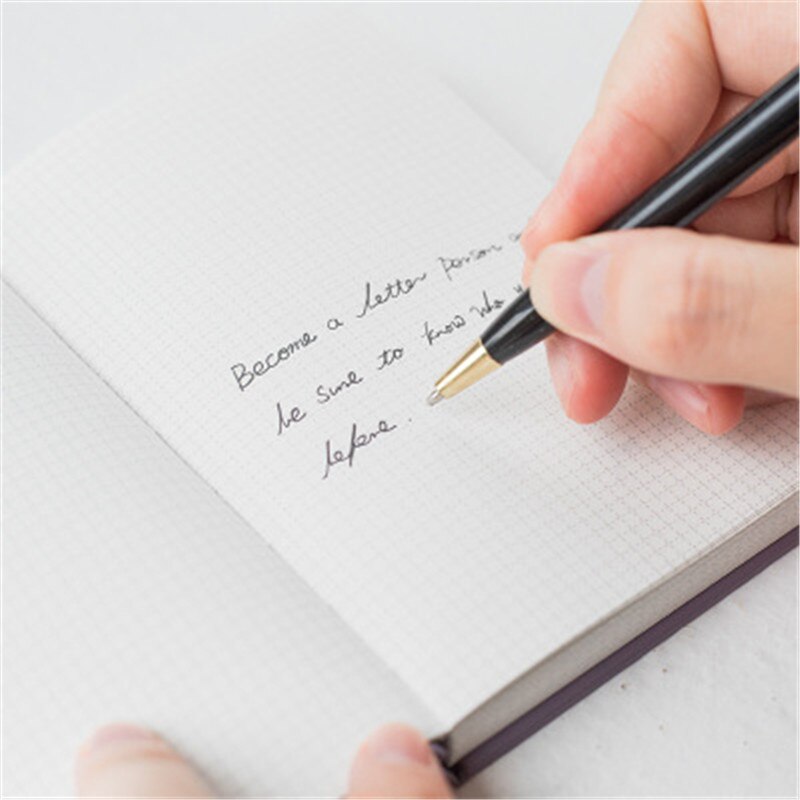 Become a letter person
be sure to know who
before.